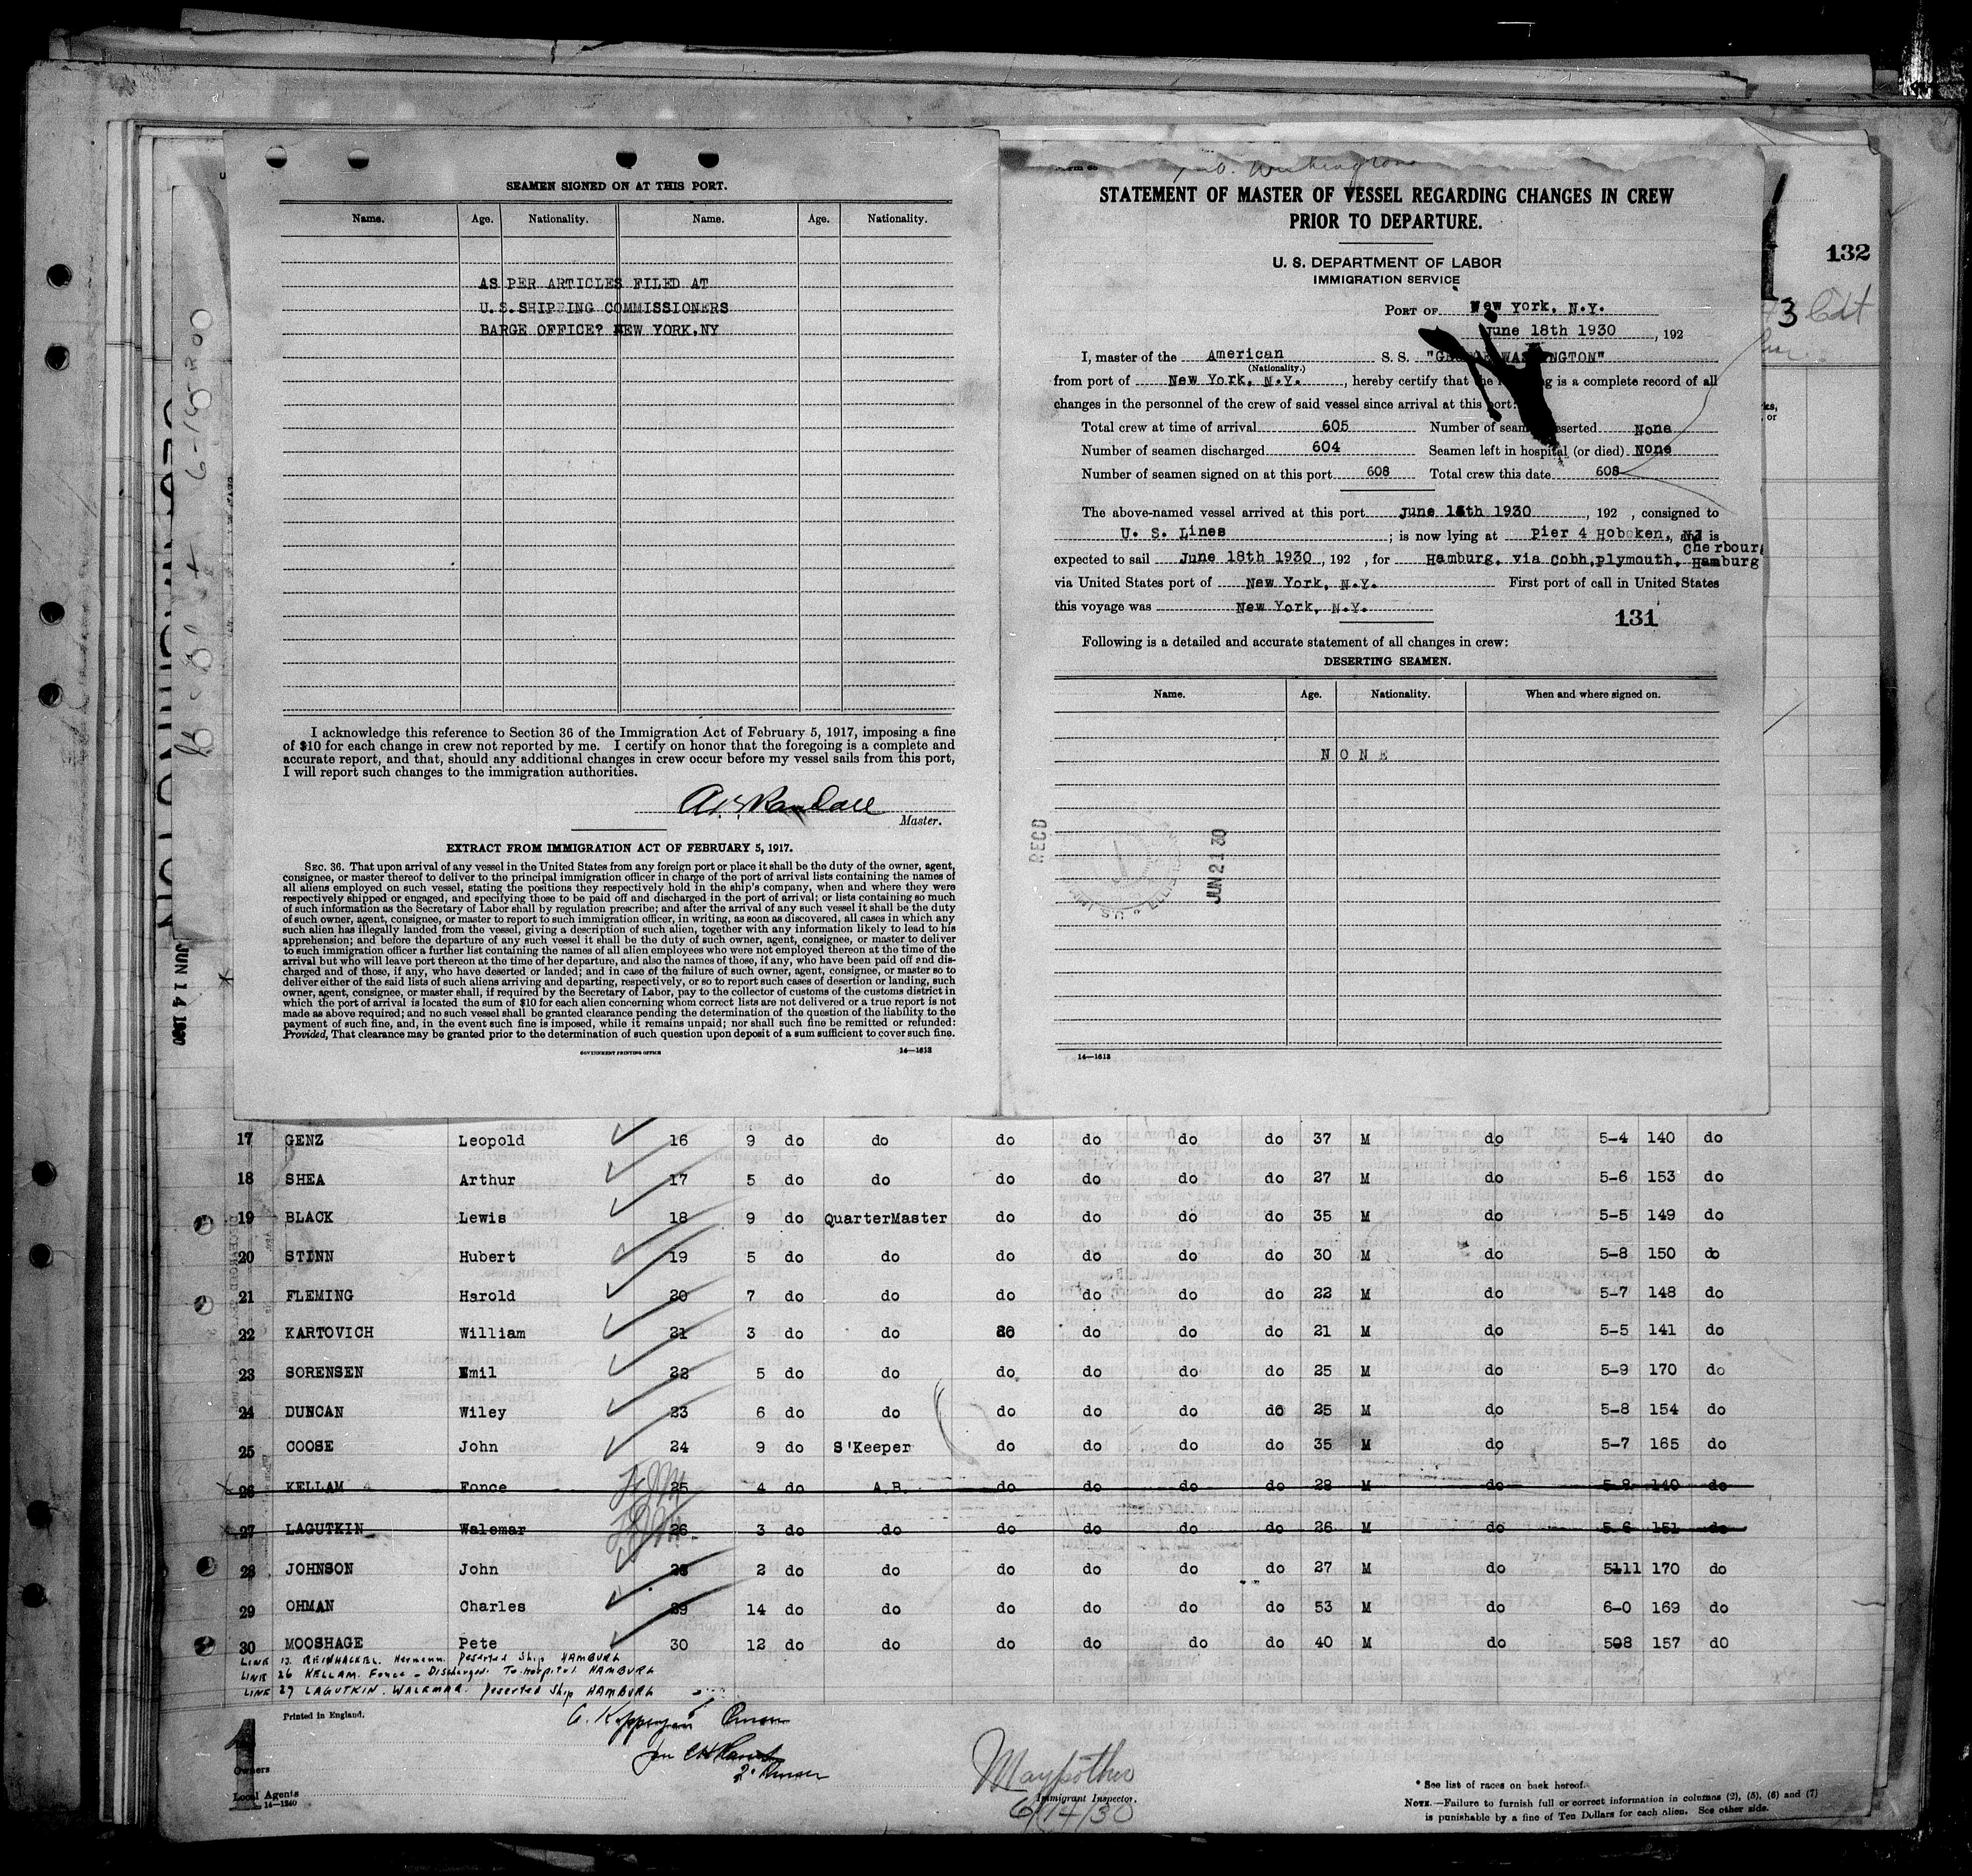 SEAMEN SIGNED ON AT THIS PORT.
Name. Age. Nationality. Name. Age. Nationality.
AS PER ARTICLES FILED AT
U.S.SHIPPING COMMISSIONERS
BARGE OFFICE? NEW YORK,NY
I acknowledge this reference to Section 36 of the Immigration Act of February 5, 1917, imposing a fine
of $10 for each change in crew not reported by me. I certify on honor that the foregoing is a complete and
accurate report, and that, should any additional changes in crew occur before my vessel sails from this port,
I will report such changes to the immigration authorities.
Randall
Master.
EXTRACT FROM IMMIGRATION ACT OF FEBRUARY 5, 1917.
SEC. 36. That upon arrival of any vessel in the United States from any foreign port or place it shall be the duty of the owner, agent,
consignee, or master thereof to deliver to the principal immigration officer in charge of the port of arrival lists containing the names of
all aliens employed on such vessel, stating the positions they respectively hold in the ship's company, when and where they were
respectively shipped or engaged, and specifying those to be paid off and discharged in the port of arrival; or lists containing so much
of such information as the Secretary of Labor shall by regulation prescribe; and after the arrival of any such vessel it shall be the duty
of such owner, agent, consignee, or master to report to such immigration officer, in writing, as soon as discovered, all cases in which any
such alien has illegally landed from the vessel, giving a description of such alien, together with any information likely to lead to his
apprehension; and before the departure of any such vessel it shall be the duty of such owner, agent, consignee, or master to deliver
to such immigration officer a further list containing the names of all alien employees who were not employed thereon at the time of the
arrival but who will leave port thereon at the time of her departure, and also the names of those, if any, who have been paid off and dis-
charged and of those, if any, who have deserted or landed; and in case of the failure of such owner, agent, consignee, or master so to
deliver either of the said lists of such aliens arriving and departing, respectively, or so to report such cases of desertion or landing, such
owner, agent, consignee, or master shall, if required by the Secretary of Labor, pay to the collector of customs of the customs district in
which the port of arrival is located the sum of $10 for each alien concerning whom correct lists are not delivered or a true report is not
made as above required; and no such vessel shall be granted clearance pending the determination of the question of the liability to the
payment of such fine, and, in the event such fine is imposed, while it remains unpaid; nor shall such fine be remitted or refunded:
Provided, That clearance may be granted prior to the determination of such question upon deposit of a sum sufficient to cover such fine.
GOVERNMENT PRINTING OFFICE 14—1613
STATEMENT OF MASTER OF VESSEL REGARDING CHANGES IN CREW
PRIOR TO DEPARTURE.
U. S. DEPARTMENT OF LABOR
IMMIGRATION SERVICE
PORT OF New York, N.Y.
June 18th 1930, 192
I, master of the American S. S. "GEORGE WASHINGTON"
(Nationality.)
from port of New York, N.Y., hereby certify that the following is a complete record of all
changes in the personnel of the crew of said vessel since arrival at this port:
Total crew at time of arrival 605 Number of seamen deserted None
Number of seamen discharged 604 Seamen left in hospital (or died) None
Number of seamen signed on at this port 608 Total crew this date 608
The above-named vessel arrived at this port June 15th 1930, 192 , consigned to
U. S. Lines ; is now lying at Pier 4 Hoboken, NJ and is
Cherbourg
expected to sail June 18th 1930, 192 , for Hamburg, via Cobh,plymouth, Hamburg
via United States port of New York, N.Y. First port of call in United States
this voyage was New York, N.Y.
131
Following is a detailed and accurate statement of all changes in crew:
DESERTING SEAMEN.
Name. Age. Nationality. When and where signed on.
NONE
RECD
JUN 21 30
14—1613
132
3
JUN 14 1930
17 GENZ Leopold 16 9 do do do do do do 37 M do 5-4 140 do
18 SHEA Arthur 17 5 do do do do do do 27 M do 5-6 153 do
19 BLACK Lewis 18 9 do QuarterMaster do do do do 35 M do 5-5 149 do
20 STINN Hubert 19 5 do do do do do do 30 M do 5-8 150 do
21 FLEMING Harold 20 7 do do do do do do 22 M do 5-7 148 do
22 KARTOVICH William 21 3 do do do do do do 21 M do 5-5 141 do
23 SORENSEN Emil 22 5 do do do do do do 25 M do 5-9 170 do
24 DUNCAN Wiley 23 6 do do do do do do 25 M do 5-8 154 do
25 COOSE John 24 9 do S'Keeper do do do do 35 M do 5-7 165 do
26 KELLAM Fonce 25 4 do A.B. do do do do 28 M do 5-8 140 do
27 LAGUTKIN Walemar 26 3 do do do do do do 26 M do 5-6 151 do
28 JOHNSON John 28 2 do do do do do do 27 M do 5111 170 do
29 OHMAN Charles 29 14 do do do do do do 53 M do 6-0 169 do
30 MOOSHAGE Pete 30 12 do do do do do do 40 M do 508 157 do
LINE 13. REINHACKEL. Hermann. Deserted Ship HAMBURG
LINE 26 KELLAM. Fonce - Discharged. To Hospital HAMBURG
LINE 27 LAGUTKIN. WALEMAR. Deserted Ship HAMBURG
Printed in England.
Owners
Local Agents
14—1240
Maypother
Immigrant Inspector.
6/14/30
* See list of races on back hereof.
NOTE.—Failure to furnish full or correct information in columns (2), (5), (6) and (7)
is punishable by a fine of Ten Dollars for each alien. See other side.